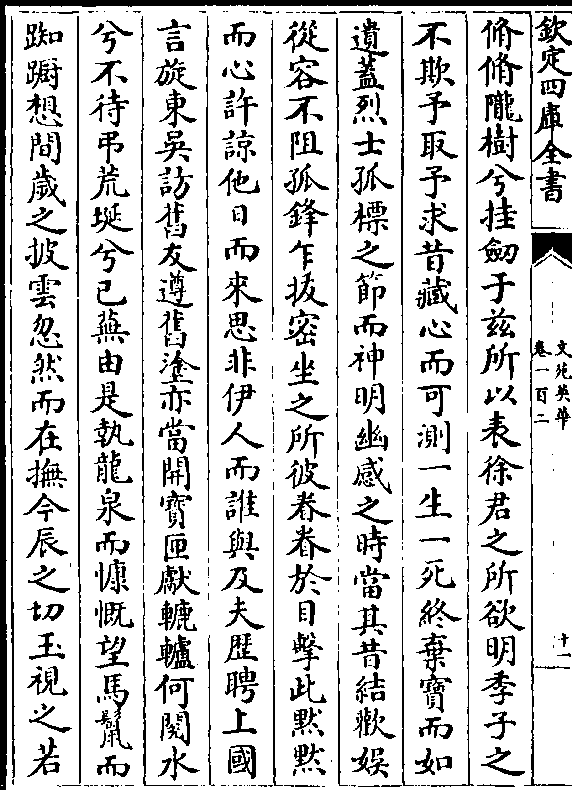 欽定四庫全書
文苑英華
卷一百二
十一
脩脩隴樹兮挂劒于兹所以表徐君之所欲明季子之
不欺予取予求昔藏心而可測一生一死終棄寳而如
遺蓋烈士孤標之節而神明幽感之時當其昔結歡娛
從容不阻孤鋒乍拔密坐之所彼眷眷於目擊此黙黙
而心許諒他日而來思非伊人而誰與及夫歴聘上國
言旋東吳訪舊友遵舊塗亦當開寳匣獻轆轤何閱水
兮不待弔荒埏兮已蕪由是執龍泉而慷慨望馬鬛而
踟蹰想間歲之披雲忽然而在撫今辰之切玉視之若